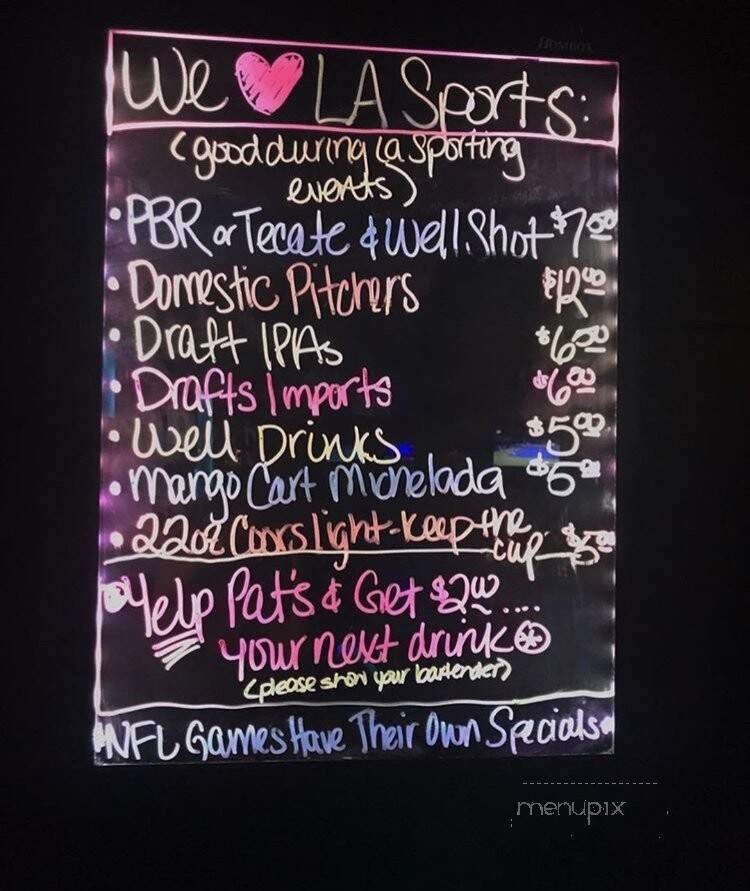 We ♥ LA Sports:
(good during la sporting
events)
• PBR or Tecate & Well Shot $7.00
• Domestic Pitchers $12.00
• Draft IPAs $6.50
• Drafts Imports $6.00
• Well Drinks $5.00
• Mango Cart Michelada $5.00
• 22oz Coors Light - Keep the
cup $5.00
Yelp Pat's & Get $2.00 ....
your next drink
(please show your bartender)
NFL Games Have Their Own Specials
menupix